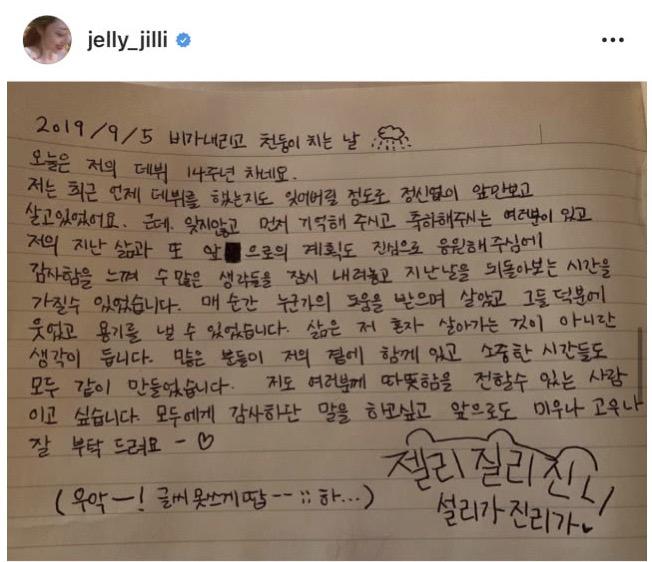 jelly_jilli
2019/9/5 비가내리고 천둥이 치는 날
오늘은 저의 데뷔 14주년 차네요.
저는 최근 언제 데뷔를 했는지도 잊어버릴 정도로 정신없이 앞만보고
살고있었어요. 근데. 잊지않고 먼저 기억해 주시고 축하해주시는 여러분이 있고
저의 지난 삶과 또 앞으로의 계획도 진심으로 응원해 주심에
감사함을 느껴 수 많은 생각들을 잠시 내려놓고 지난날을 뒤돌아보는 시간을
가질수 있었습니다. 매 순간 누군가의 도움을 받으며 살았고 그들 덕분에
웃었고 용기를 낼 수 있었습니다. 삶은 저 혼자 살아가는 것이 아니란
생각이 듭니다. 많은 분들이 저의 곁에 함께 있고 소중한 시간들도
모두 같이 만들었습니다. 저도 여러분께 따뜻함을 전할수 있는 사람
이고 싶습니다. 모두에게 감사하단 말을 하고싶고 앞으로도 미우나 고우나
잘 부탁 드려요 - ♡
젤리 질리 진리
(우악ㅡ! 글씨 못쓰게땁 -- ;; 하...)
설리가 진리가♥